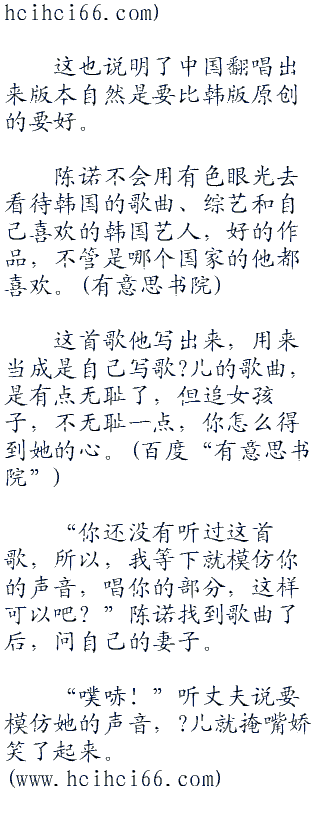 hcihci66.com)
这也说明了中国翻唱出
来版本自然是要比韩版原创
的要好。
陈诺不会用有色眼光去
看待韩国的歌曲、综艺和自
己喜欢的韩国艺人，好的作
品，不管是哪个国家的他都
喜欢。(有意思书院)
这首歌他写出来，用来
当成是自己写歌?儿的歌曲，
是有点无耻了，但追女孩
子，不无耻一点，你怎么得
到她的心。(百度“有意思书
院”)
“你还没有听过这首
歌，所以，我等下就模仿你
的声音，唱你的部分，这样
可以吧？”陈诺找到歌曲了
后，问自己的妻子。
“噗哧！”听丈夫说要
模仿她的声音，?儿就掩嘴娇
笑了起来。
(www.hcihci66.com)